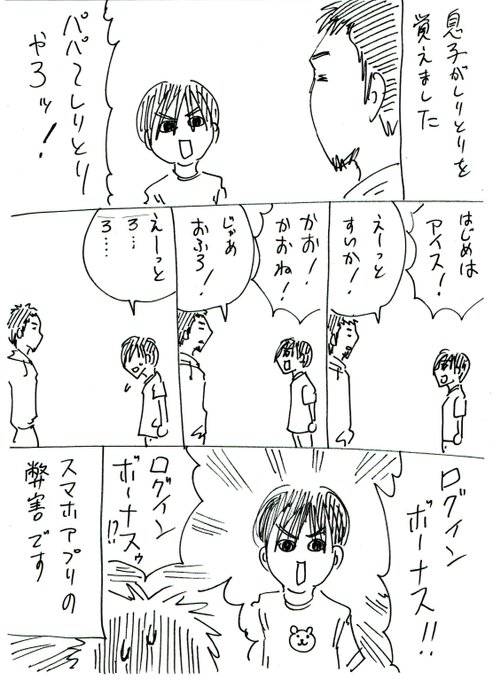 息子がしりとりを
覚えました
パパ〜しりとり
やろッ!
はじめは
アイス!
えーっと
すいか!
かお!
かおね!
じゃあ
おふろ!
えーっと
ろ…
ろ……
ログイン
ボーナス!!
ログイン
ボーナスゥ
!?
スマホアプリの
弊害です